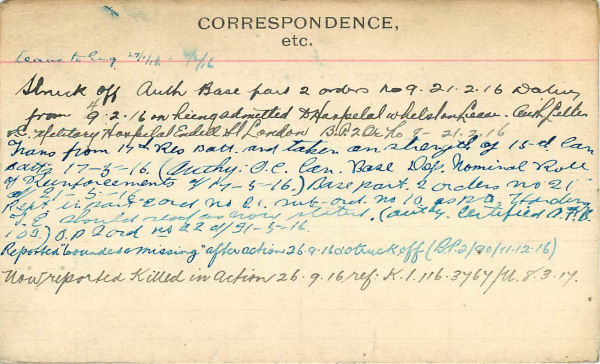 CORRESPONDENCE,
etc.
Leave to Eng 27/1/16 - /2/16
Struck off Auth Base part 2 orders no 9. 21.2.16 Dating
from 9.2.16 on being admitted to Hospital whilst on leave. Auth Letter
O.C. Military Hospital Endell St London B.P.2.O. No 8 - 21.2.16
Trans from 17th Res Batt. and taken on strength of 15th Can
Batt. 17-3-16. (Authy: O.C. Can. Base Dep. Nominal Roll
of Reinforcements d/17-3-16.) Base part. 2 orders no 21
d/ Rept. in part 2 ord no 21. sub-ord. no 10 as Heading
should read as now stated. (Authy. Certified A.F.B.
103) B.P 2 ord no 22 d/31-3-16.
Reported "wounded & missing" after action 26.9.16 & struck off (B.P.2/90/11-12-16)
Now reported Killed in Action 26.9.16 ref. K.1.116.3767/M. 8.3.17.